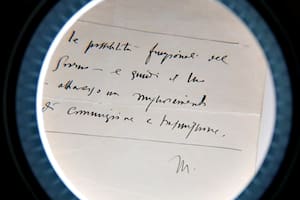 le possibilità funzionali del
– e quindi il
attraverso un miglioramento
di comunicazione e trasmissione.
M.